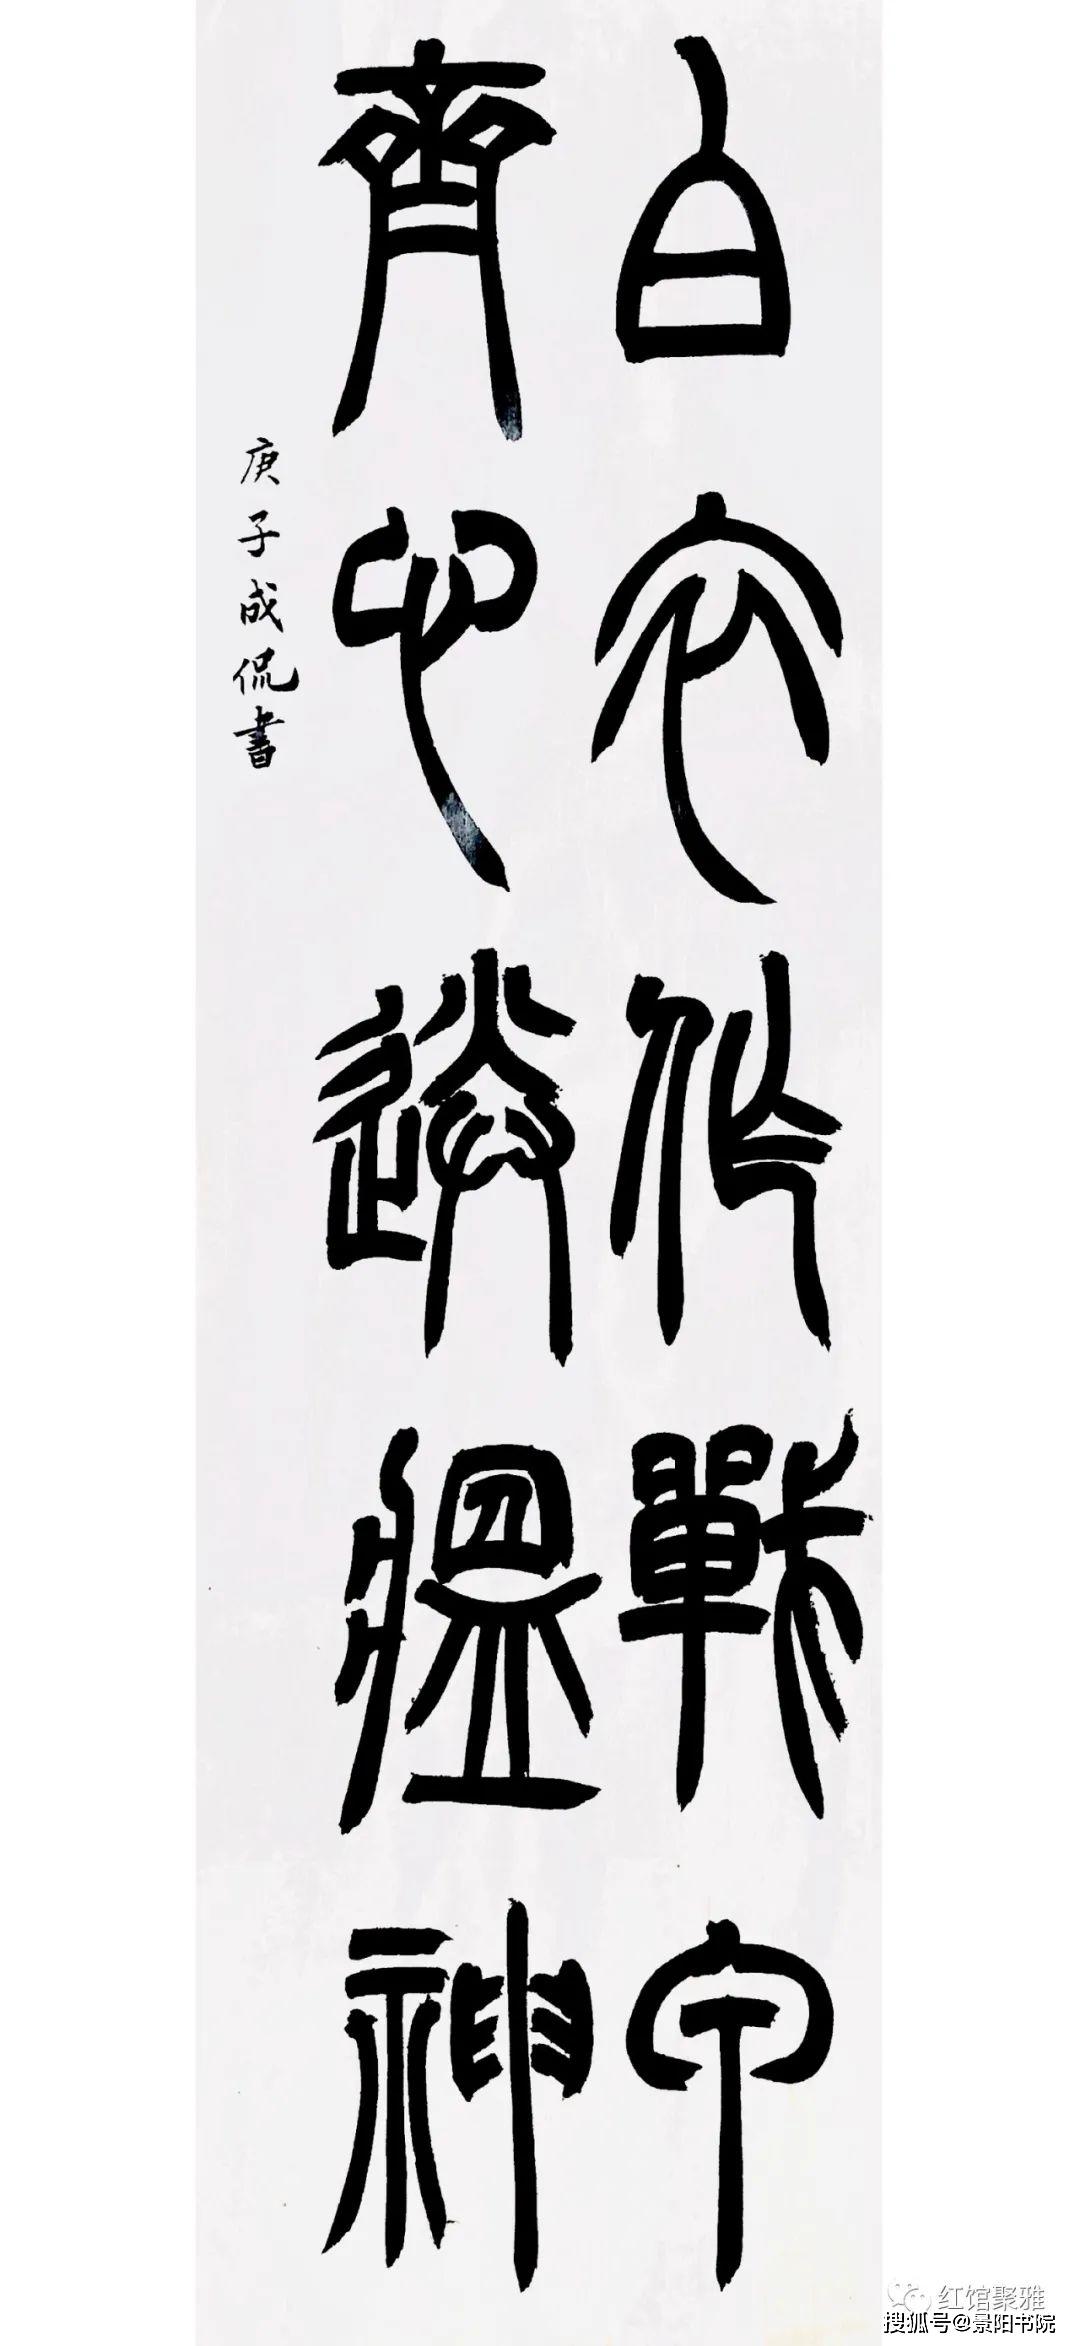 白衣作戰甲
齊心送瘟神
庚子成侃書
红馆聚雅
搜狐号@景阳书院